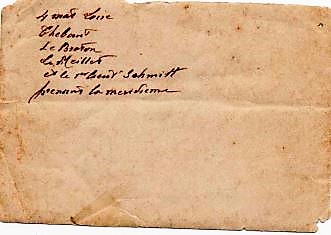 4 mat Loire
Thebaut
Le Breton
Le Meillet
et le 1er Cont Schmitt
prenant la meridienne